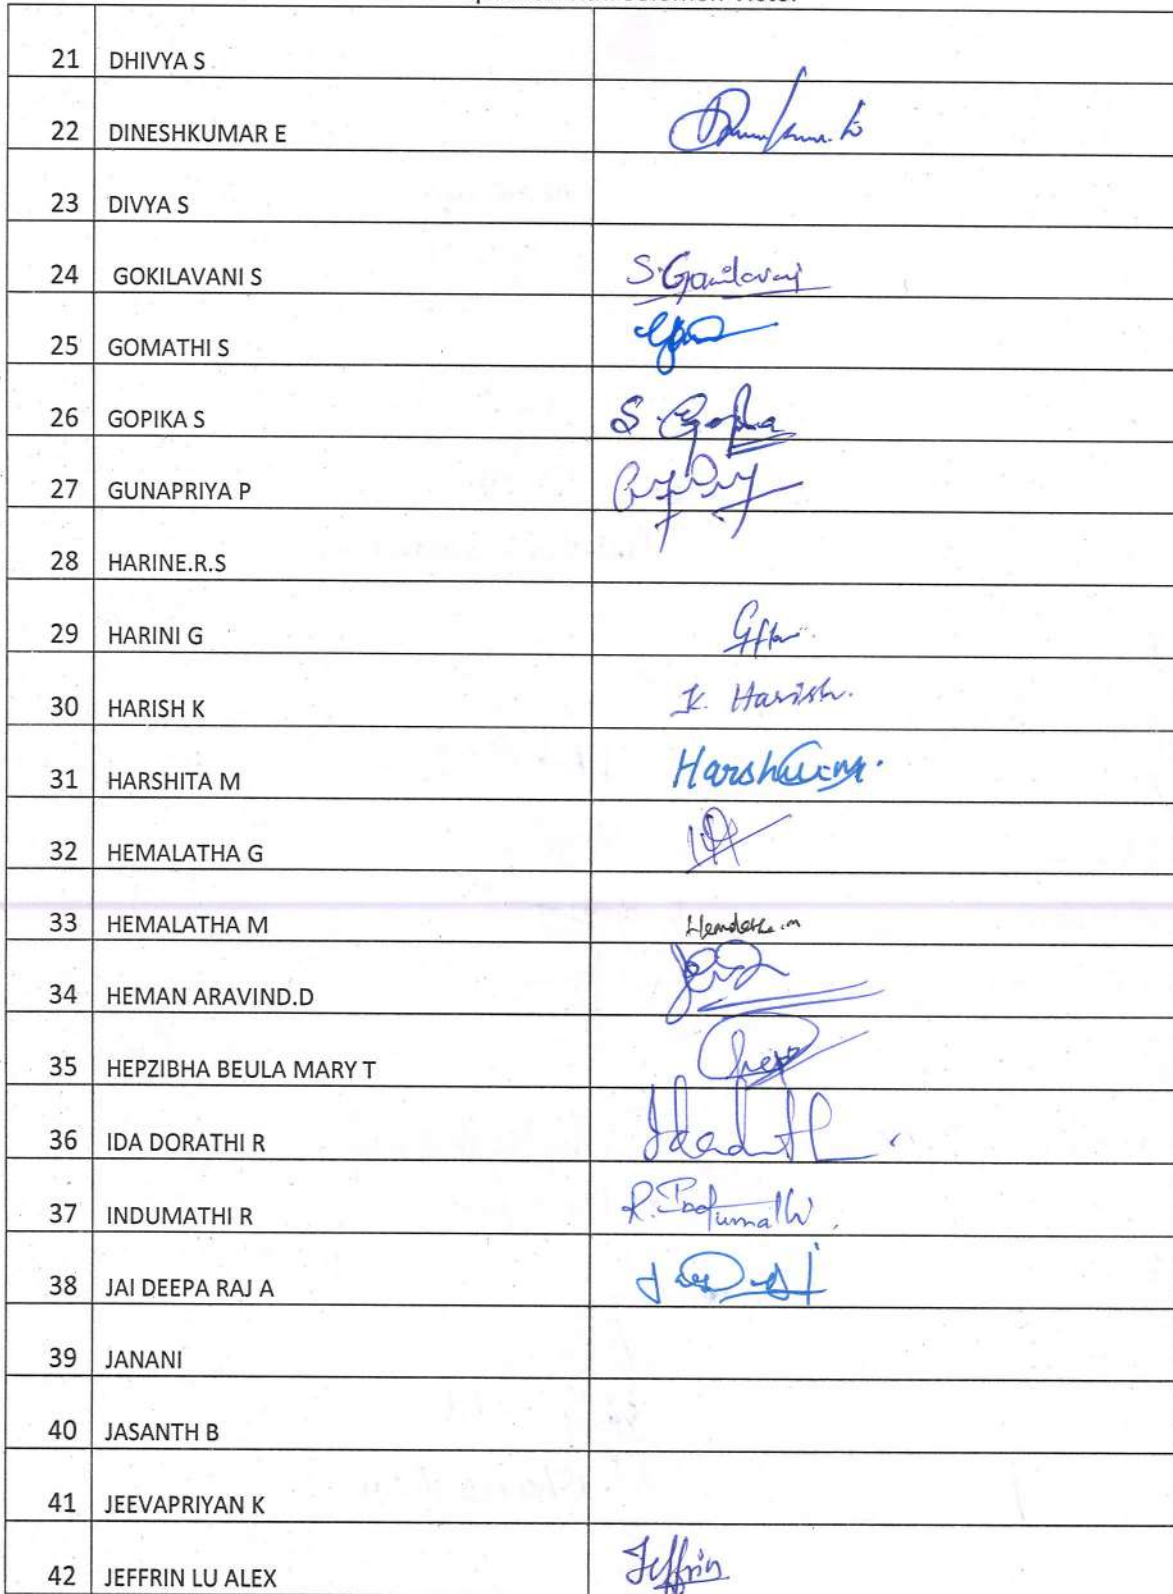 21 DHIVYA S
22 DINESHKUMAR E
23 DIVYA S
24 GOKILAVANI S
25 GOMATHI S
26 GOPIKA S S. Gopika
27 GUNAPRIYA P
28 HARINE.R.S
29 HARINI G
30 HARISH K K. Harish.
31 HARSHITA M
32 HEMALATHA G
33 HEMALATHA M
34 HEMAN ARAVIND.D
35 HEPZIBHA BEULA MARY T
36 IDA DORATHI R
37 INDUMATHI R R. Indumathi
38 JAI DEEPA RAJ A
39 JANANI
40 JASANTH B
41 JEEVAPRIYAN K
42 JEFFRIN LU ALEX Jeffrin